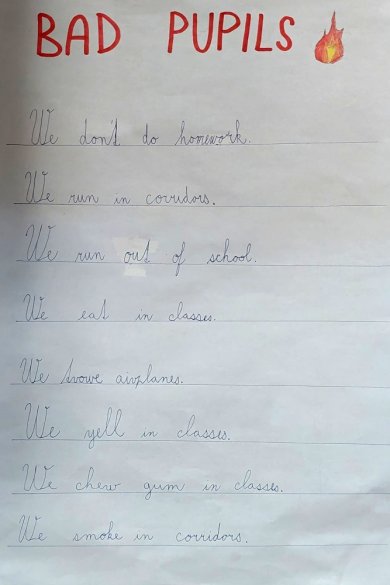 BAD PUPILS
We don't do homework.
We run in corridors.
We run out of school.
We eat in classes.
We trowe airplanes.
We yell in classes.
We chew gum in classes.
We smoke in corridors.